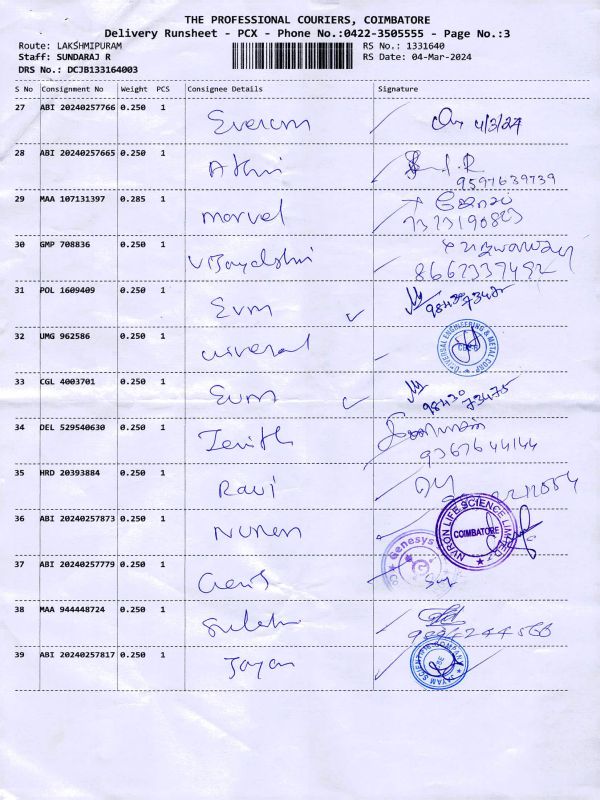 THE PROFESSIONAL COURIERS, COIMBATORE
Delivery Runsheet - PCX - Phone No.:0422-3505555 - Page No.:3
Route: LAKSHMIPURAM RS No.: 1331640
Staff: SUNDARAJ R RS Date: 04-Mar-2024
DRS No.: DCJB133164003
S No Consignment No Weight PCS Consignee Details Signature
27 ABI 20240257766 0.250 1 4/3/24
28 ABI 20240257665 0.250 1 Athri
9597639739
29 MAA 107131397 0.285 1 Marvel
7373190803
30 GMP 708836 0.250 1
8667339492
31 POL 1609409 0.250 1 Evm
32 UMG 962586 0.250 1 UNIVERSAL ENGINEERING & METAL CORP
33 CGL 4003701 0.250 1 Evm 98430 73475
34 DEL 529540630 0.250 1 Zenith
9367644144
35 HRD 20393884 0.250 1 Ravi
36 ABI 20240257873 0.250 1 NVRON LIFE SCIENCE LIMITED COIMBATORE
37 ABI 20240257779 0.250 1 Genesys
38 MAA 944448724 0.250 1
39 ABI 20240257817 0.250 1 Jayam JAYAM SCIENTIFIC COMPANY CBE